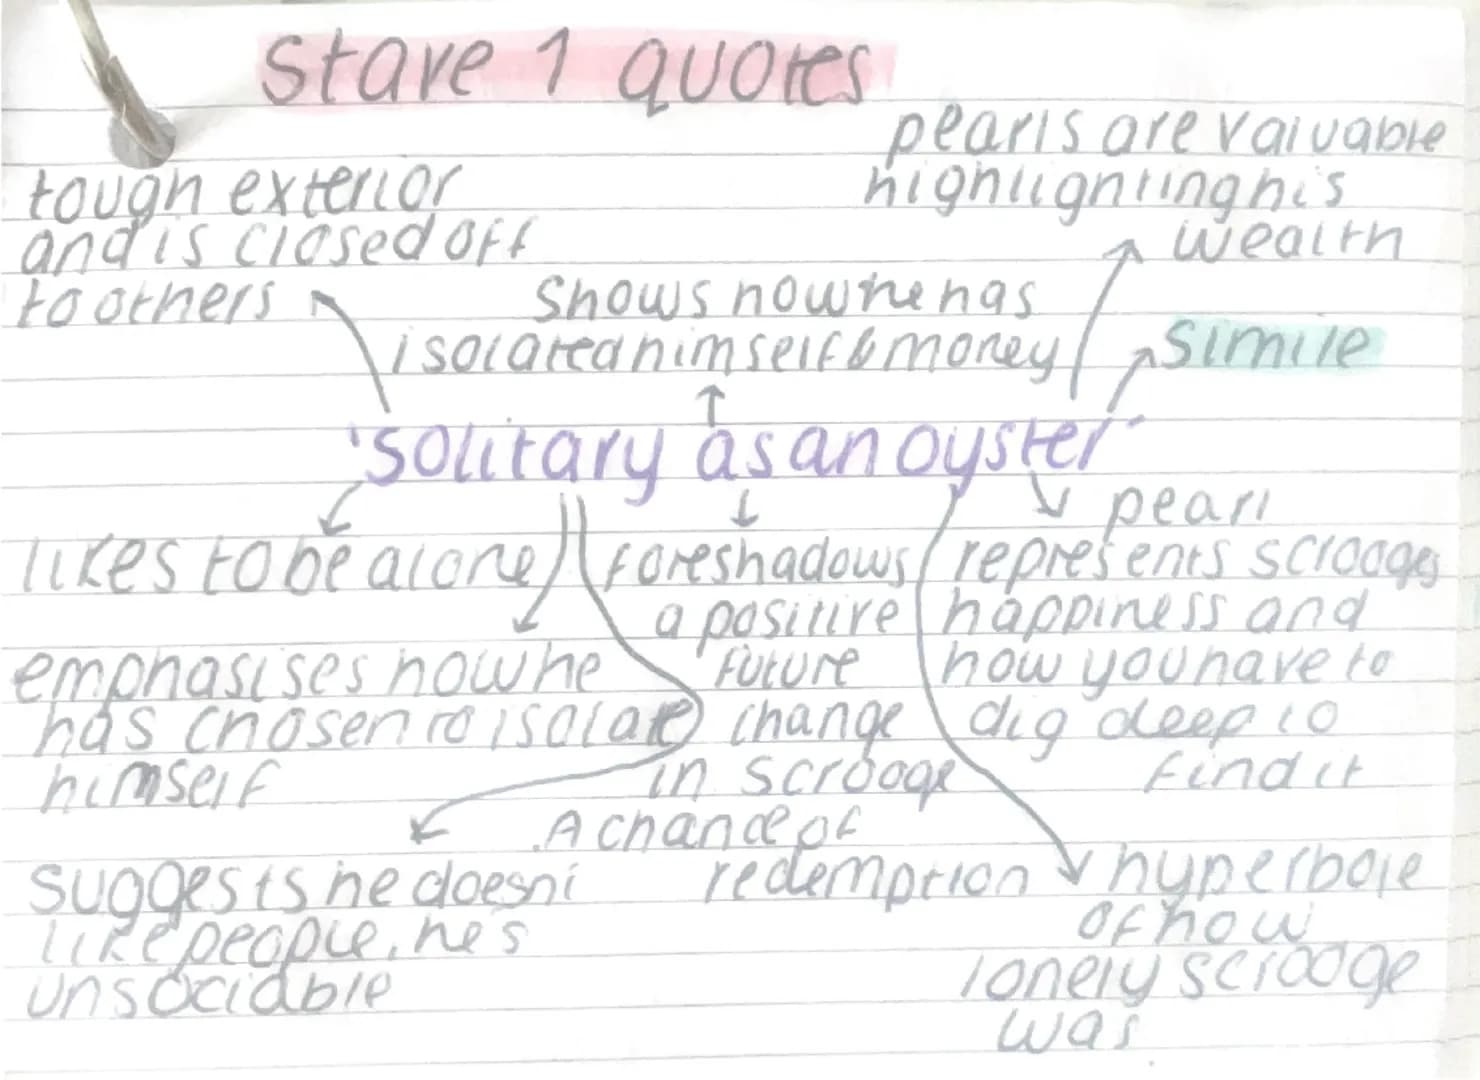 Stave 1 quotes
pearls are valuable
highlighting his
wealth
tough exterior
and is closed off
to others
Shows how he has
isolated himself & money
Simile
'solitary as an oyster'
likes to be alone
foreshadows
a positive
future
change
in scrooge
A chance of
redemption
pearl
represents scrooges
happiness and
how you have to
dig deep to
find it
emphasises how he
has chosen to isolate
himself
suggests he doesnt
like people, he's
unsociable
hyperbole
of how
lonely scrooge
was